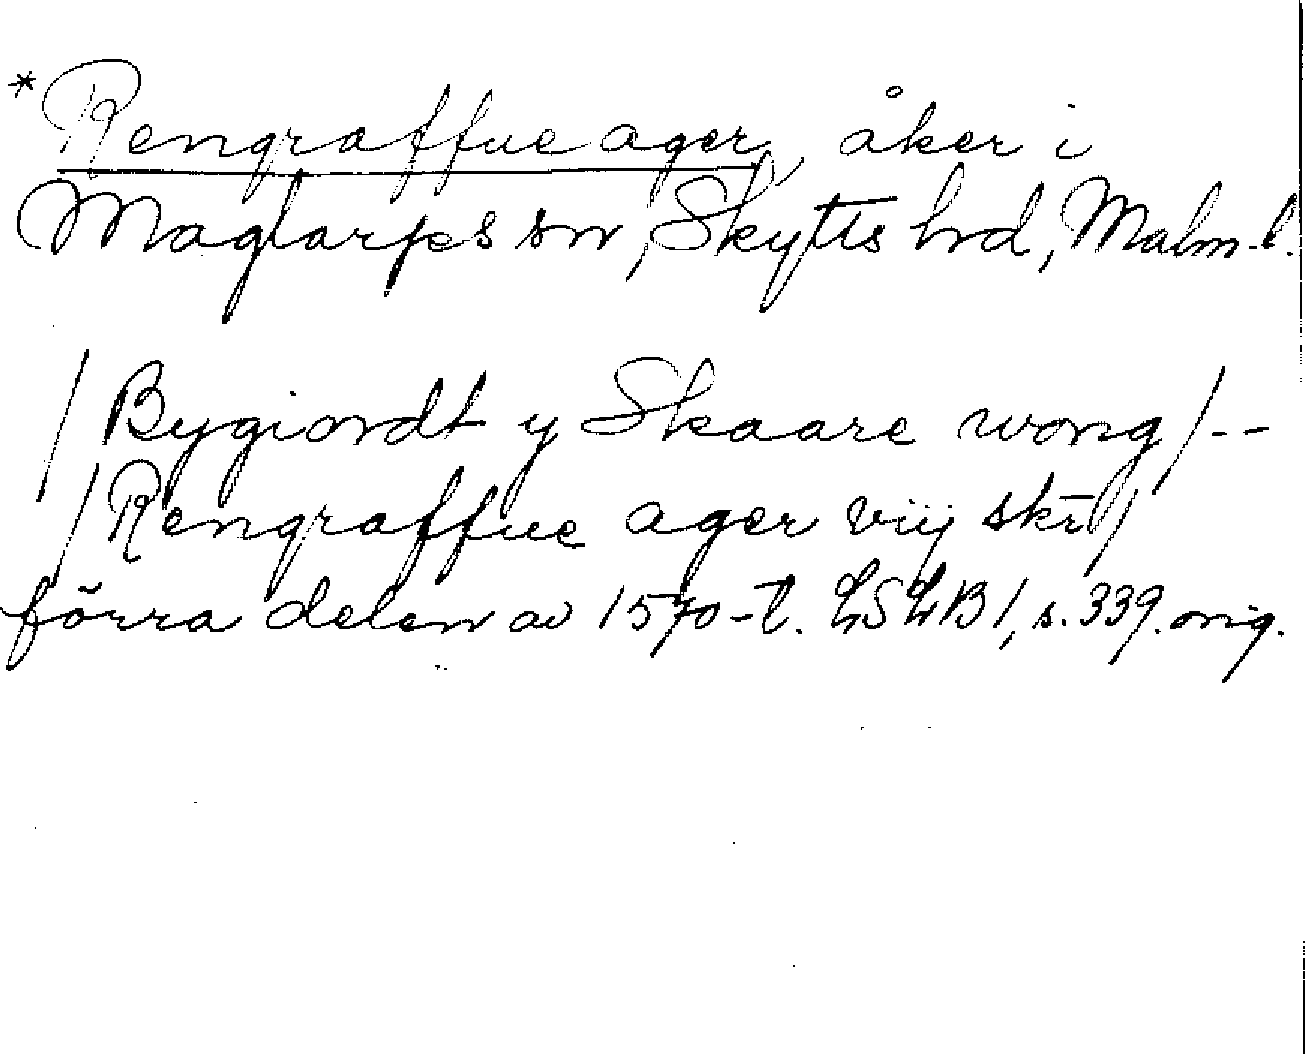 *Rengraffue ager, åker i
Maglarps sn, Skytts hrd, Malm-l.
/Bygiordt y Skaare wong/--
/Rengraffue ager viij skr̄/
förra delen av 1570-t. LSLB1, s. 339. orig.